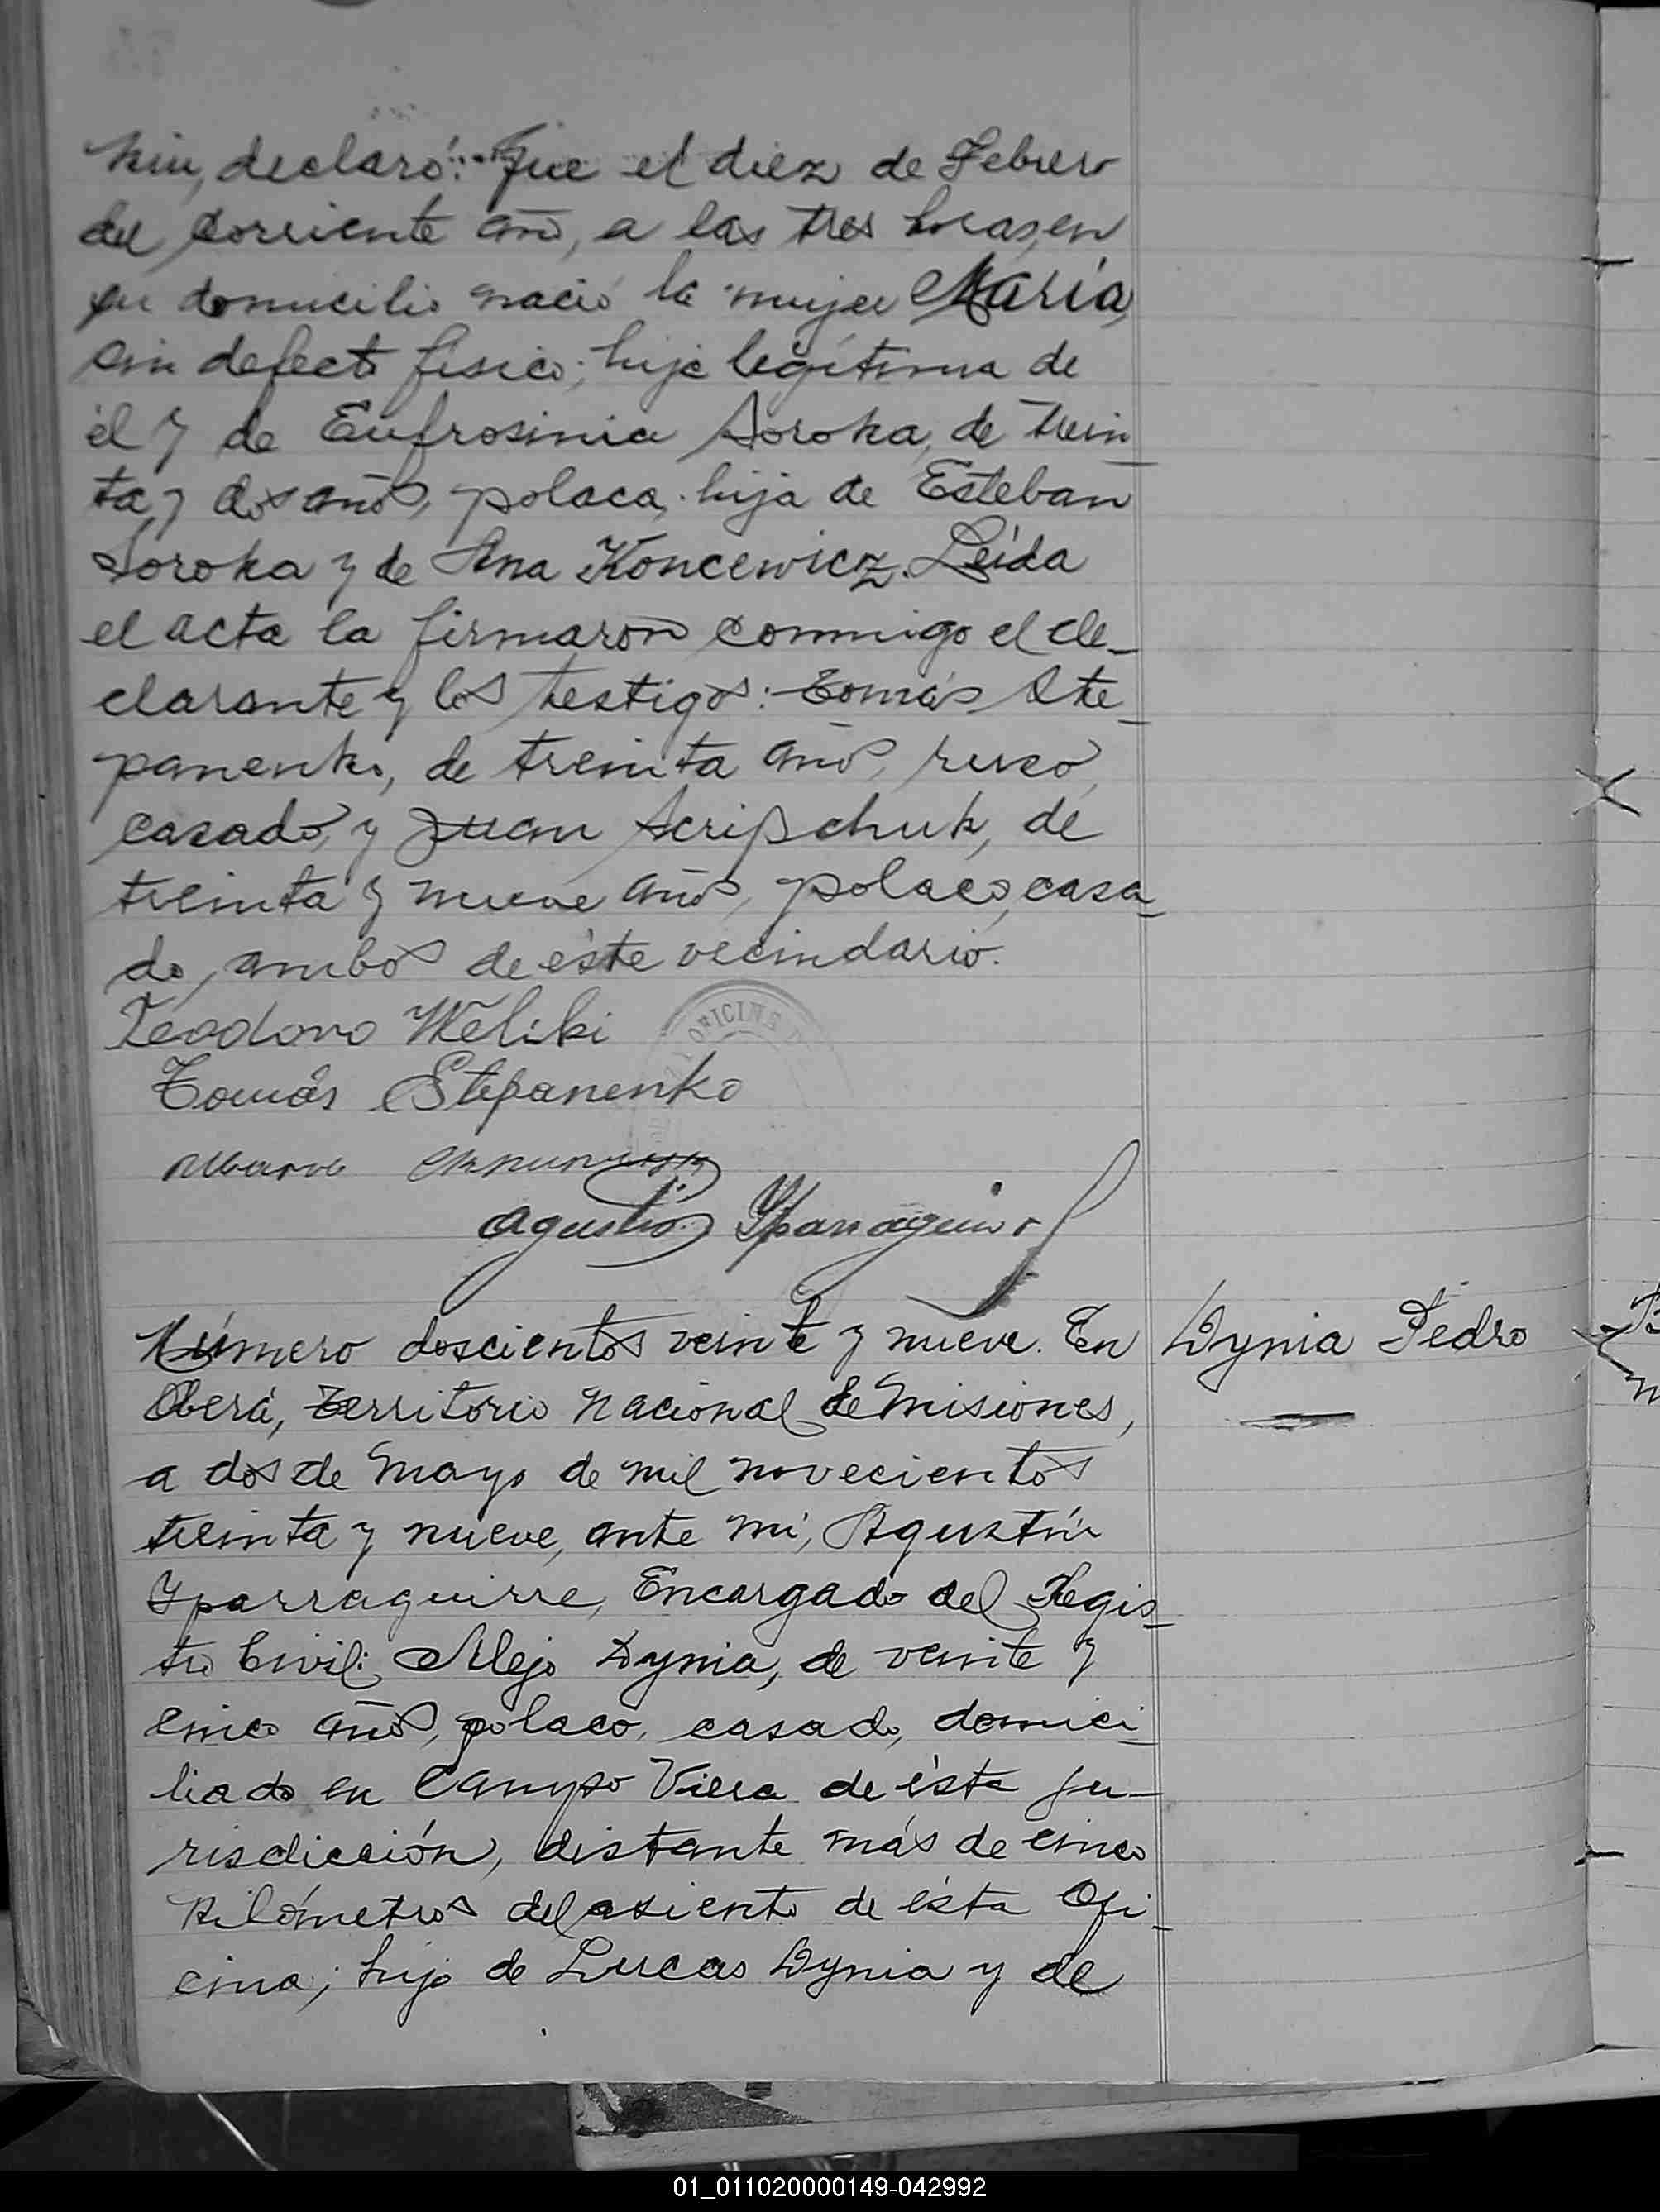 kin, declaró: Que el diez de Febrero
del corriente año, a las tres horas, en
su domicilio nació la mujer María,
sin defecto físico; hija legítima de
él y de Eufrosinia Soroka, de trein
ta y dos años, polaca, hija de Esteban
Soroka y de Ana Koncewicz. Leída
el acta la firmaron conmigo el de-
clarante y los testigos: Tomás Ste-
panenko, de treinta años, ruso,
casado, y Juan Scripchuk, de
treinta y nueve años, polaco, casa-
do, ambos de éste vecindario.
Teodoro Weliki
Tomás Stepanenko
Agustín Yparraguirre
OFICINA
Número doscientos veinte y nueve. En
Dynia Pedro
Oberá, Territorio Nacional de Misiones,
a dos de Mayo de mil novecientos
treinta y nueve, ante mí, Agustín
Yparraguirre, Encargado del Regis-
tro Civil: Alejo Dynia, de veinte y
cinco años, polaco, casado, domici-
liado en Campo Viera de ésta ju-
risdicción, distante más de cinco
kilómetros del asiento de ésta Ofi-
cina; hijo de Lucas Dynia y de
01_011020000149-042992